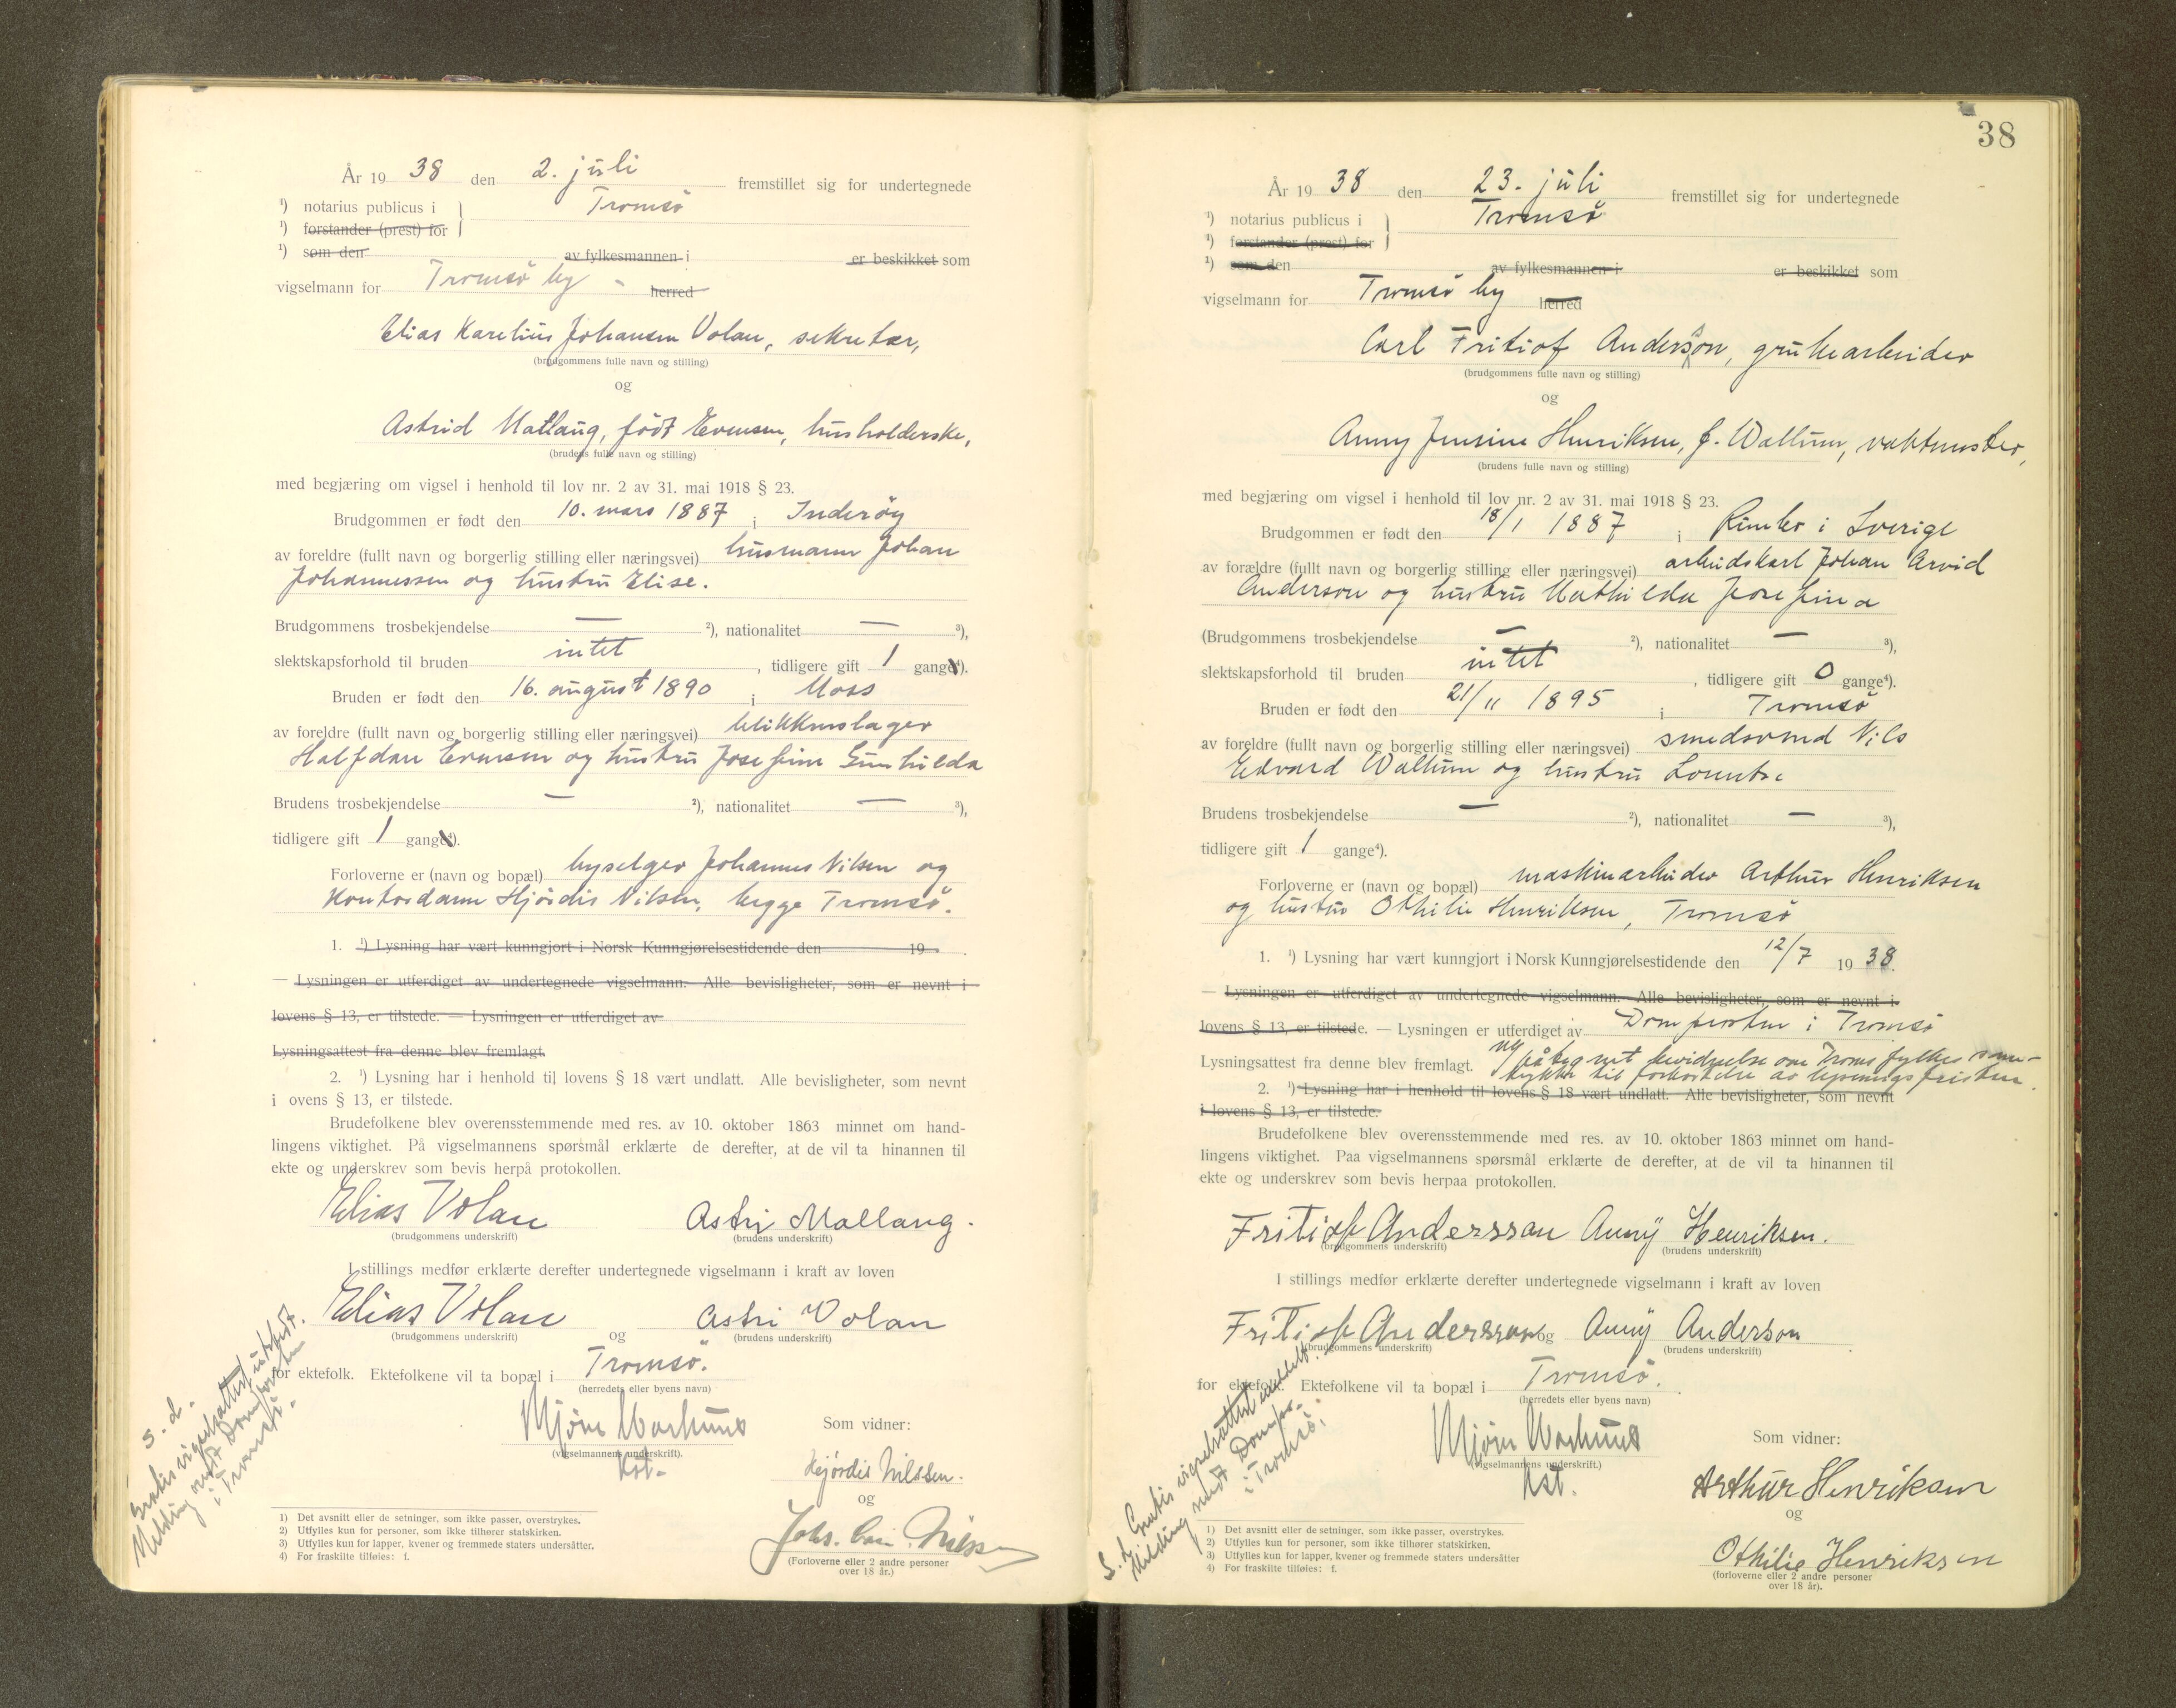 År 19 38 den 2. juli fremstillet sig for undertegnede
¹) notarius publicus i Tromsö
¹) forstander (prest) for
¹) som den av fylkesmannen i er beskikket som
vigselmann for Tromsö by - herred
Elias Karelius Johansen Volan, sekretær,
(brudgommens fulle navn og stilling)
og
Astrid Matlaug, född Evensen, husholderske,
(brudens fulle navn og stilling)
med begjæring om vigsel i henhold til lov nr. 2 av 31. mai 1918 § 23.
Brudgommen er født den 10. mars 1887 i Inderöy
av foreldre (fullt navn og borgerlig stilling eller næringsvei) husmann Johan
Johannessen og hustru Elise.
Brudgommens trosbekjendelse — ²), nationalitet — ³),
slektskapsforhold til bruden intet, tidligere gift 1 gange⁴).
Bruden er født den 16. august 1890 i Moss
av foreldre (fullt navn og borgerlig stilling eller næringsvei) blikkenslager
Halfdan Evensen og hustru Josefine Gunhilda
Brudens trosbekjendelse — ²), nationalitet — ³),
tidligere gift 1 gange⁴).
Forloverne er (navn og bopæl) byselger Johannes Nilsen og
kontordame Hjördis Nilsen, begge Tromsö.
1. ¹) Lysning har vært kunngjort i Norsk Kunngjørelsestidende den 19 .
— Lysningen er utferdiget av undertegnede vigselmann. Alle bevisligheter, som er nevnt i
lovens § 13, er tilstede. — Lysningen er utferdiget av
Lysningsattest fra denne blev fremlagt.
2. ¹) Lysning har i henhold til lovens § 18 vært undlatt. Alle bevisligheter, som nevnt
i ovens § 13, er tilstede.
Brudefolkene blev overensstemmende med res. av 10. oktober 1863 minnet om hand-
lingens viktighet. På vigselmannens spørsmål erklærte de derefter, at de vil ta hinannen til
ekte og underskrev som bevis herpå protokollen.
Elias Volan Astri Mallaug.
(brudgommens underskrift) (brudens underskrift)
I stillings medfør erklærte derefter undertegnede vigselmann i kraft av loven
Elias Volan og Astri Volan
(brudgommens underskrift) (brudens underskrift)
for ektefolk. Ektefolkene vil ta bopæl i Tromsö.
(herredets eller byens navn)
Mjöen Som vidner:
(vigselmannens underskrift).
kst.
Hjördis Nilssen.
og
Johs. Nilssen
(Forloverne eller 2 andre personer
over 18 år.)
S. d.
Gratis vigselsattest utstedt.
Melding sendt Domprosten
i Tromsö.
1) Det avsnitt eller de setninger, som ikke passer, overstrykes.
2) Utfylles kun for personer, som ikke tilhører statskirken.
3) Utfylles kun for lapper, kvener og fremmede staters undersåtter.
4) For fraskilte tilføies: f.
38
År 19 38 den 23. juli fremstillet sig for undertegnede
¹) notarius publicus i Tromsö
¹) forstander (prest) for
¹) som den av fylkesmannen i er beskikket som
vigselmann for Tromsö by herred
Carl Fritiof Andersson, grubearbeider
(brudgommens fulle navn og stilling)
og
Anny Jensine Henriksen, f. Wallum, vaktmester,
(brudens fulle navn og stilling)
med begjæring om vigsel i henhold til lov nr. 2 av 31. mai 1918 § 23.
Brudgommen er født den 18/1 1887 i Rimbo i Sverige
av foreldre (fullt navn og borgerlig stilling eller næringsvei) arbeidskarl Johan Arvid
Anderson og hustru Mathilda Josefina
(Brudgommens trosbekjendelse — ²), nationalitet — ³),
slektskapsforhold til bruden intet, tidligere gift 0 gange⁴).
Bruden er født den 21/11 1895 i Tromsö
av foreldre (fullt navn og borgerlig stilling eller næringsvei) smedsvend Nils
Edvard Wallum og hustru
Brudens trosbekjendelse — ²), nationalitet — ³),
tidligere gift 1 gange⁴).
Forloverne er (navn og bopæl) maskinarbeider Arthur Henriksen
og hustru Othilie Henriksen, Tromsö
1. ¹) Lysning har vært kunngjort i Norsk Kunngjørelsestidende den 12/7 19 38.
— Lysningen er utferdiget av undertegnede vigselmann. Alle bevisligheter, som er nevnt i
lovens § 13, er tilstede. — Lysningen er utferdiget av Domprosten i Tromsö
Lysningsattest fra denne blev fremlagt. og påtegnet bevidnelse om Troms fylkes sam-
tykke til forkortelse av lysningsfristen.
2. ¹) Lysning har i henhold til lovens § 18 vært undlatt. Alle bevisligheter, som nevnt
i lovens § 13, er tilstede.
Brudefolkene blev overensstemmende med res. av 10. oktober 1863 minnet om hand-
lingens viktighet. Paa vigselmannens spørsmål erklærte de derefter, at de vil ta hinannen til
ekte og underskrev som bevis herpaa protokollen.
Fritiof Andersson Anny Henriksen.
(brudgommens underskrift) (brudens underskrift)
I stillings medfør erklærte derefter undertegnede vigselmann i kraft av loven
Fritiof Andersson og Anny Anderson
(brudgommens underskrift) (brudens underskrift)
for ektefolk. Ektefolkene vil ta bopæl i Tromsö.
(herredets eller byens navn)
Mjöen Som vidner:
(vigselmannens underskrift.)
kst.
Arthur Henriksen
og
Othilie Henriksen
(forloverne eller 2 andre personer
over 18 år).
S. d. Gratis vigselsattest utstedt.
Melding sendt Dompr.
i Tromsö.
1) Det avsnitt eller de setninger, som ikke passer, overstrykes.
2) Utfylles kun for personer, som ikke tilhører statskirken.
3) Utfylles kun for lapper, kvener og fremmede staters undersåtter
4) For fraskilte tilføies: f.